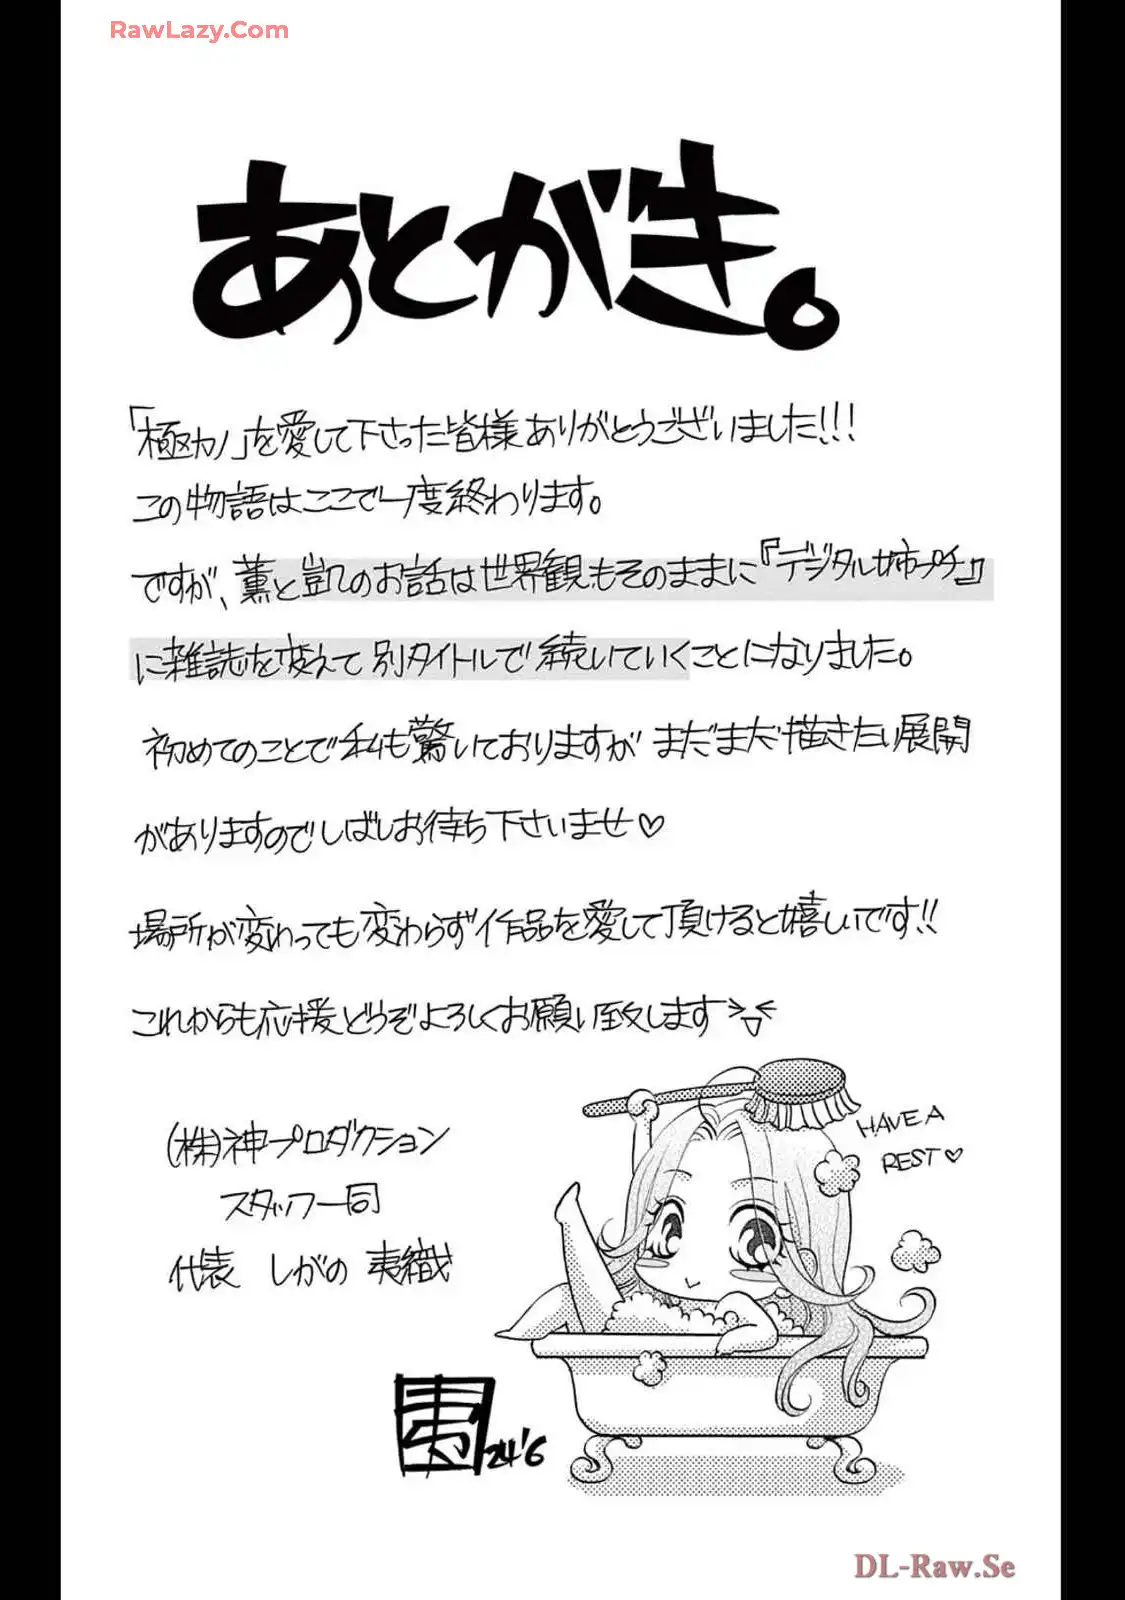 RawLazy.Com
あとがき。
「極カノ」を愛して下さった皆様ありがとうございました!!!
この物語はここで一度終わります。
ですが、薫と凱のお話は世界観もそのままに『デジタル姉プチ』
に雑誌を変えて別タイトルで続いていくことになりました。
初めてのことで私も驚いておりますがまだまだ描きたい展開
がありますのでしばしお待ち下さいませ♡
場所が変わっても変わらず作品を愛して頂けると嬉しいです!!
これからも応援どうぞよろしくお願い致します
HAVE A
REST♡
(株)神プロダクション
スタッフ一同
代表 しがの夷織
夷 24'6
DL-Raw.Se